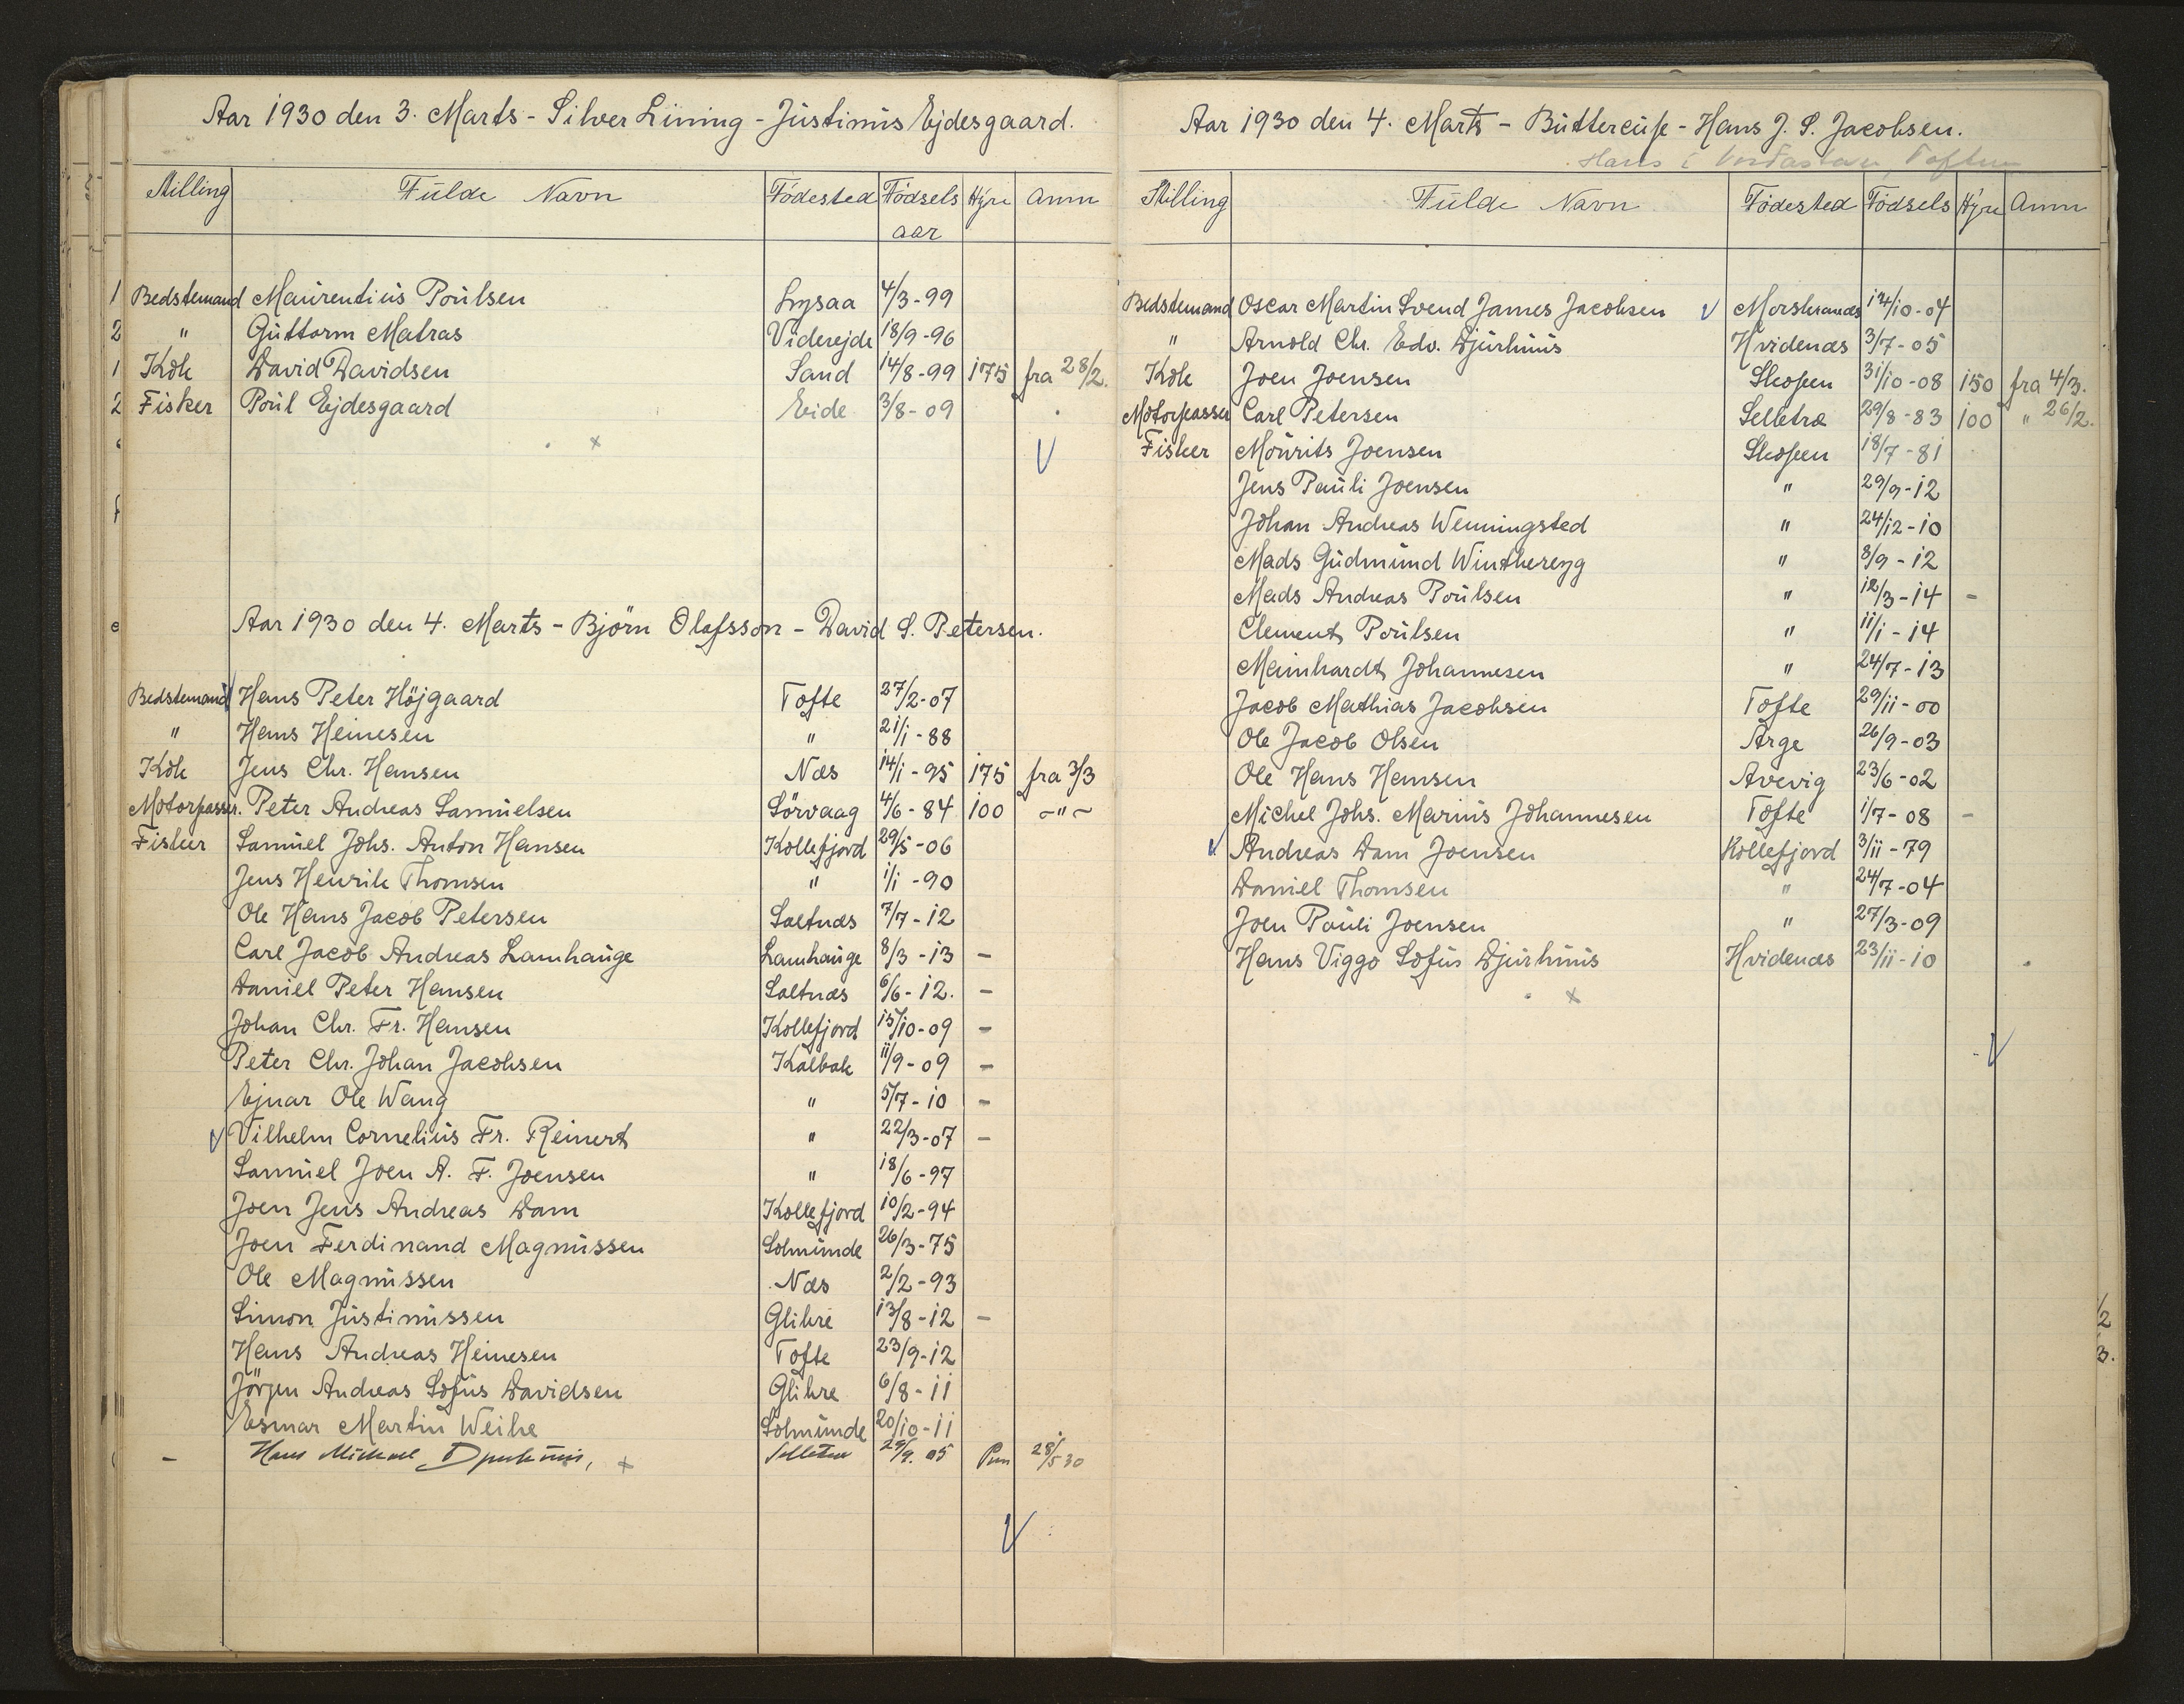 Aar 1930 den 3. Marts - Silver Lining - Justinus Ejdesgaard.
Stilling Fulde Navn Födested Födsels aar Hyre Anm
1 Bedstemand Maurentius Poulsen Lysaa 4/3-99
2 " Guttorm Matras Viderejde 18/9-96
1 Kok David Davidsen Sand 14/8-99 175 fra 28/2.
2 Fisker Poul Ejdesgaard Eide 3/8-09
Aar 1930 den 4. Marts - Björn Olafsson - David S. Petersen.
Bedstemand Hans Peter Höjgaard Tofte 27/2-07
" Hans Heinesen " 21/1-88
Kok Jens Chr. Hansen Næs 14/1-95 175 fra 3/3
Motorpasser. Peter Andreas Samuelsen Sörvaag 4/6-84 100 -"-
Fisker Samuel Johs. Anton Hansen Kollefjord 29/5-06
Jens Henrik Thomsen " 1/1-90
Ole Hans Jacob Petersen Saltnæs 7/7-12
Carl Jacob Andreas Lamhauge Lamhauge 8/3-13 -
Daniel Peter Hansen Saltnæs 6/6-12. -
Johan Chr. Fr. Hansen Kollefjord 15/10-09 -
Peter Chr. Johan Jacobsen Kalbak 11/9-09 -
Ejnar Ole Wang " 5/7-10 -
Vilhelm Cornelius Fr. Reinert " 22/3-07 -
Samuel Joen A. F. Joensen " 18/6-97
Joen Jens Andreas Dam Kollefjord 10/2-94
Joen Ferdinand Magnussen Solmunde 26/3-75
Ole Magnussen Næs 2/2-93
Simon Justinussen Glibre 13/8-12 -
Hans Andreas Heinesen Tofte 23/9-12
Jörgen Andreas Sofus Davidsen Glibre 6/8-11
Esmar Martin Weihe Solmunde 20/10-11
- Hans Michael Djurhuus, Selletræ 29/9.05 28/5 30
Aar 1930 den 4. Marts - Buttercup - Hans J. S. Jacobsen.
Hans i
Stilling Fulde Navn Födested Födsels Hyre Anm
Bedstemand Oscar Martin Svend James Jacobsen Morskranes 14/10-04
" Arnold Chr. Edv. Djurhuus Hvidenæs 3/7-05
Kok Joen Joensen Skopen 31/10-08 150 fra 4/3.
Motorpasser Carl Petersen Selletræ 29/8-83 100 " 26/2.
Fisker Mourits Joensen Skopen 18/7-81
Jens Pauli Joensen " 29/9-12
Johan Andreas Wenningsted " 24/12-10
Mads Gudmund Winthereyg " 8/9-12
Mads Andreas Poulsen " 12/3-14 -
Clement Poulsen " 11/1-14
Mainhardt Johannesen " 24/7-13
Jacob Mathias Jacobsen Tofte 29/11-00
Ole Jacob Olsen Arge 26/9-03
Ole Hans Hansen Avevig 23/6-02
Michel Johs. Marius Johannesen Tofte 1/7-08 -
Andreas Dam Joensen Kollefjord 3/11-79
Daniel Thomsen " 24/7-04
Joen Pauli Joensen " 27/3-09
Hans Viggo Sofus Djurhuus Hvidenæs 23/11-10